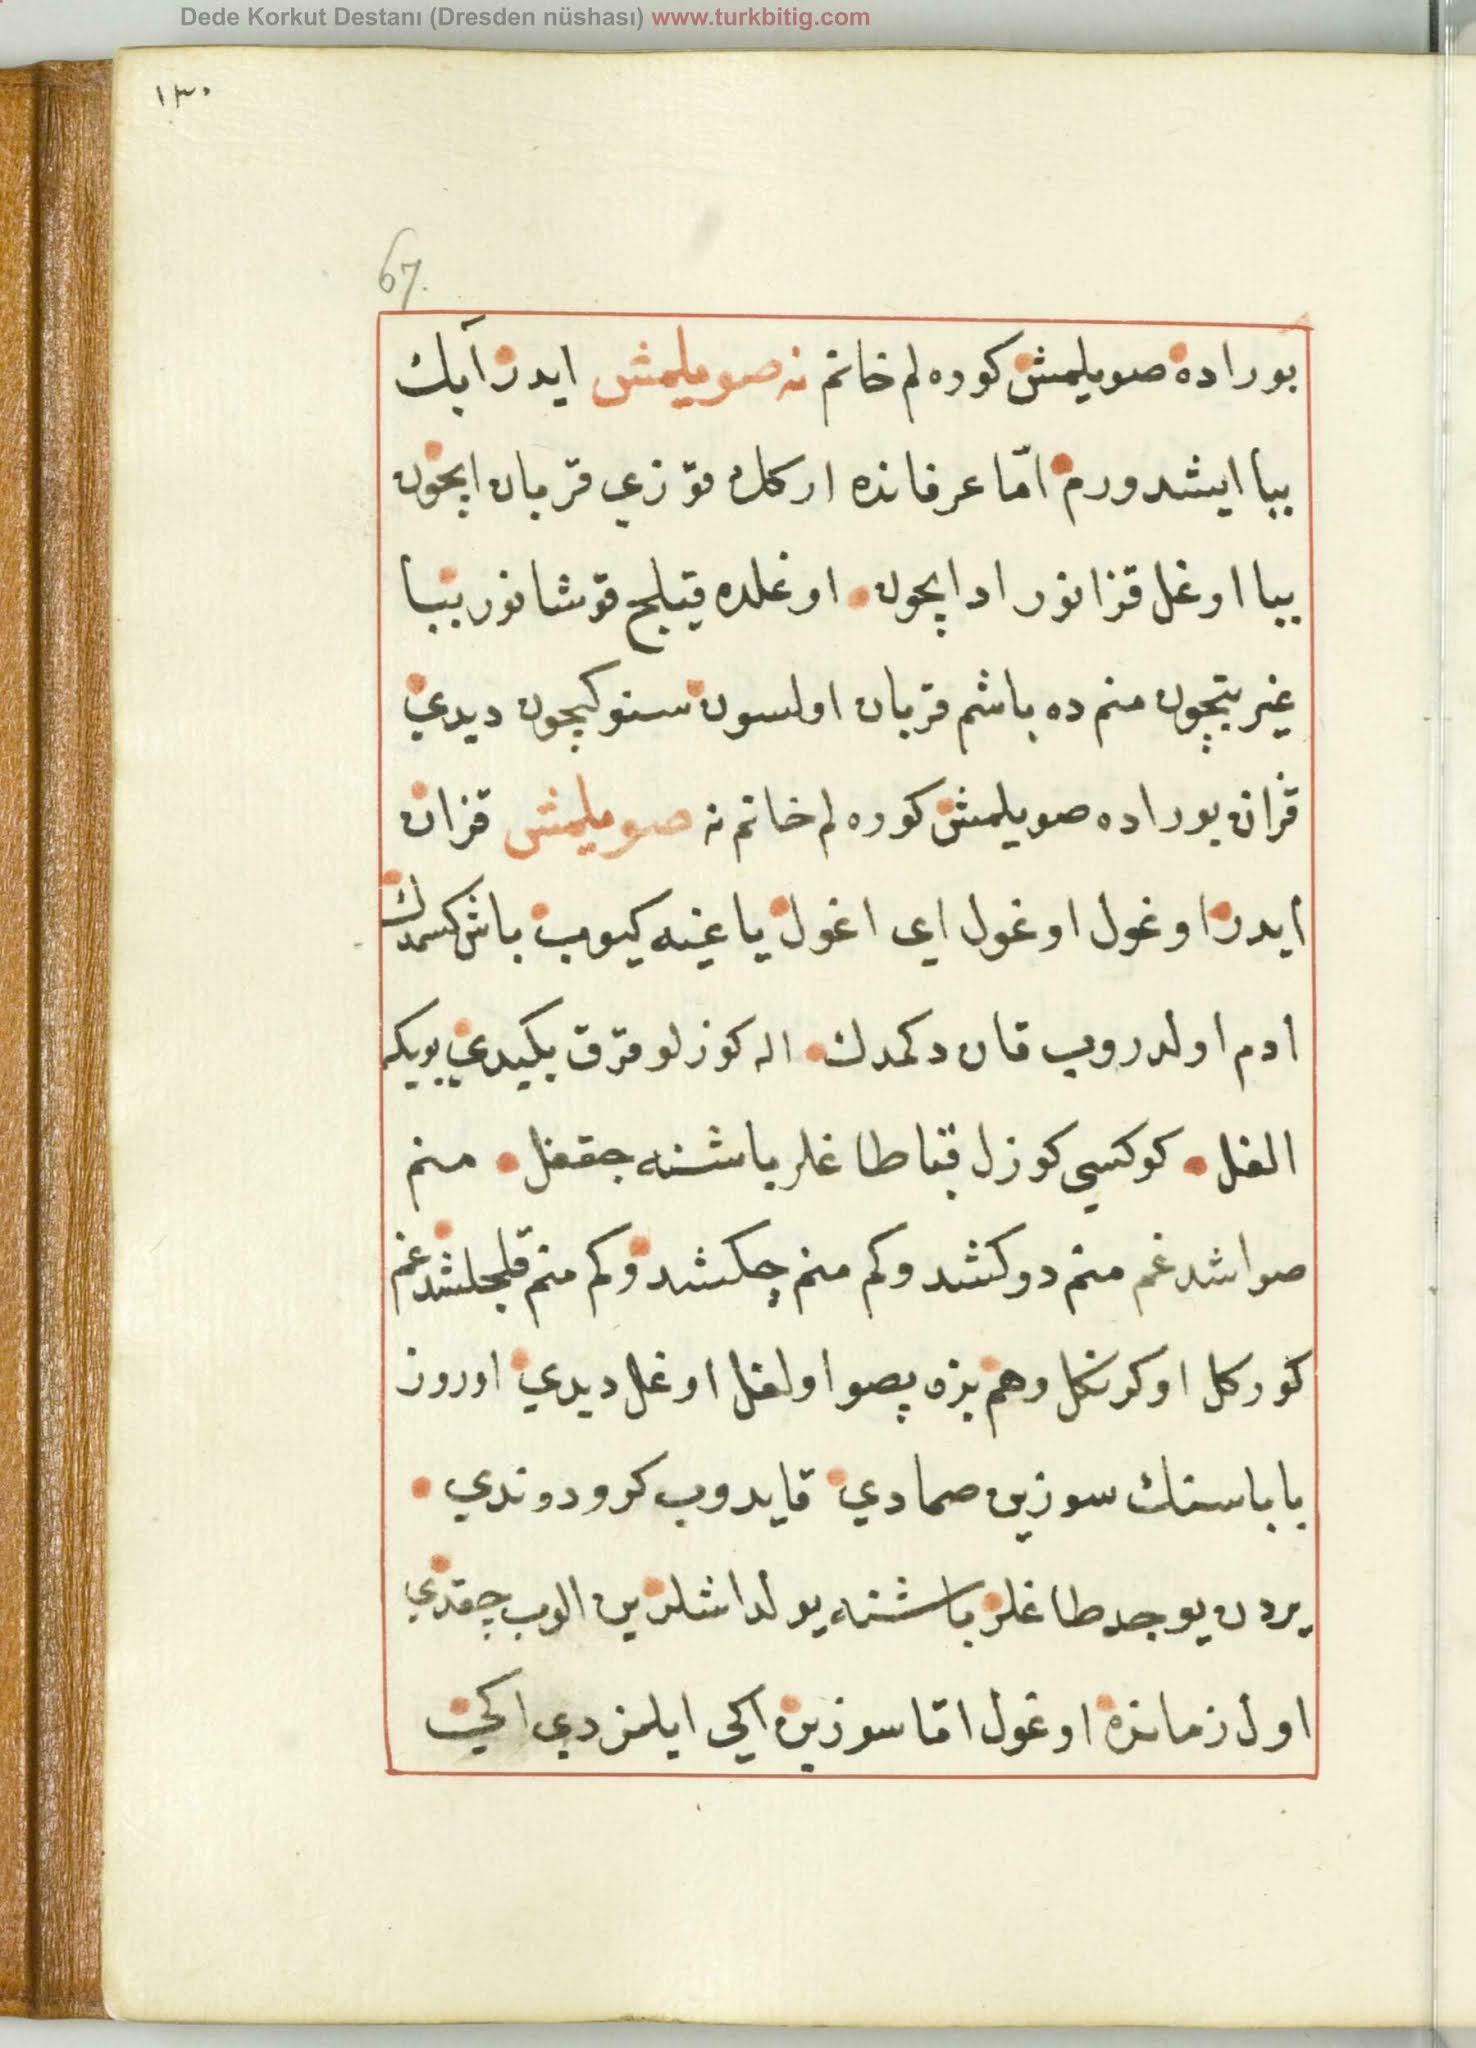 Dede Korkut Destanı (Dresden nüshası) www.turkbitig.com
١٣٠
67.
بوراده صویلمش کوره لم خانم نه صویلمش ایدر آبك
ببا ایشدورم امّا عرفانده ارکك قوزي قربان ایچون
ببا اوغل قزانور اد ایچون اوغلده قیلیج قوشانور ببا
غیرتیچون منم ده باشم قربان اولسون سنوکیچون دیدي
قزان بوراده صویلمش کوره لم خانم نه صویلمش قزان
ایدر اوغول اوغول ای اغول یاغینه کیروب باش کسمدك
ادم اولدروب قان دکمدك اله کوزلو قرق یکیدي بویکه
الغل کوکسي کوزل قبا طاغلر باشنه چقغل منم
صواشدغم منم دوکشدوکم منم چکشدوکم منم قلجلشدغم
کورکل اوکرنکل وهم بزه پصو اولغل اوغل دیدي اوروز
باباسنك سوزین صمادي قایدوب کرو دوندي
یردن یوجه طاغلر باشنه یولداشلرین الوب چقدي
اول زمانده اوغول اتا سوزین اکي ایلمزدي اکي